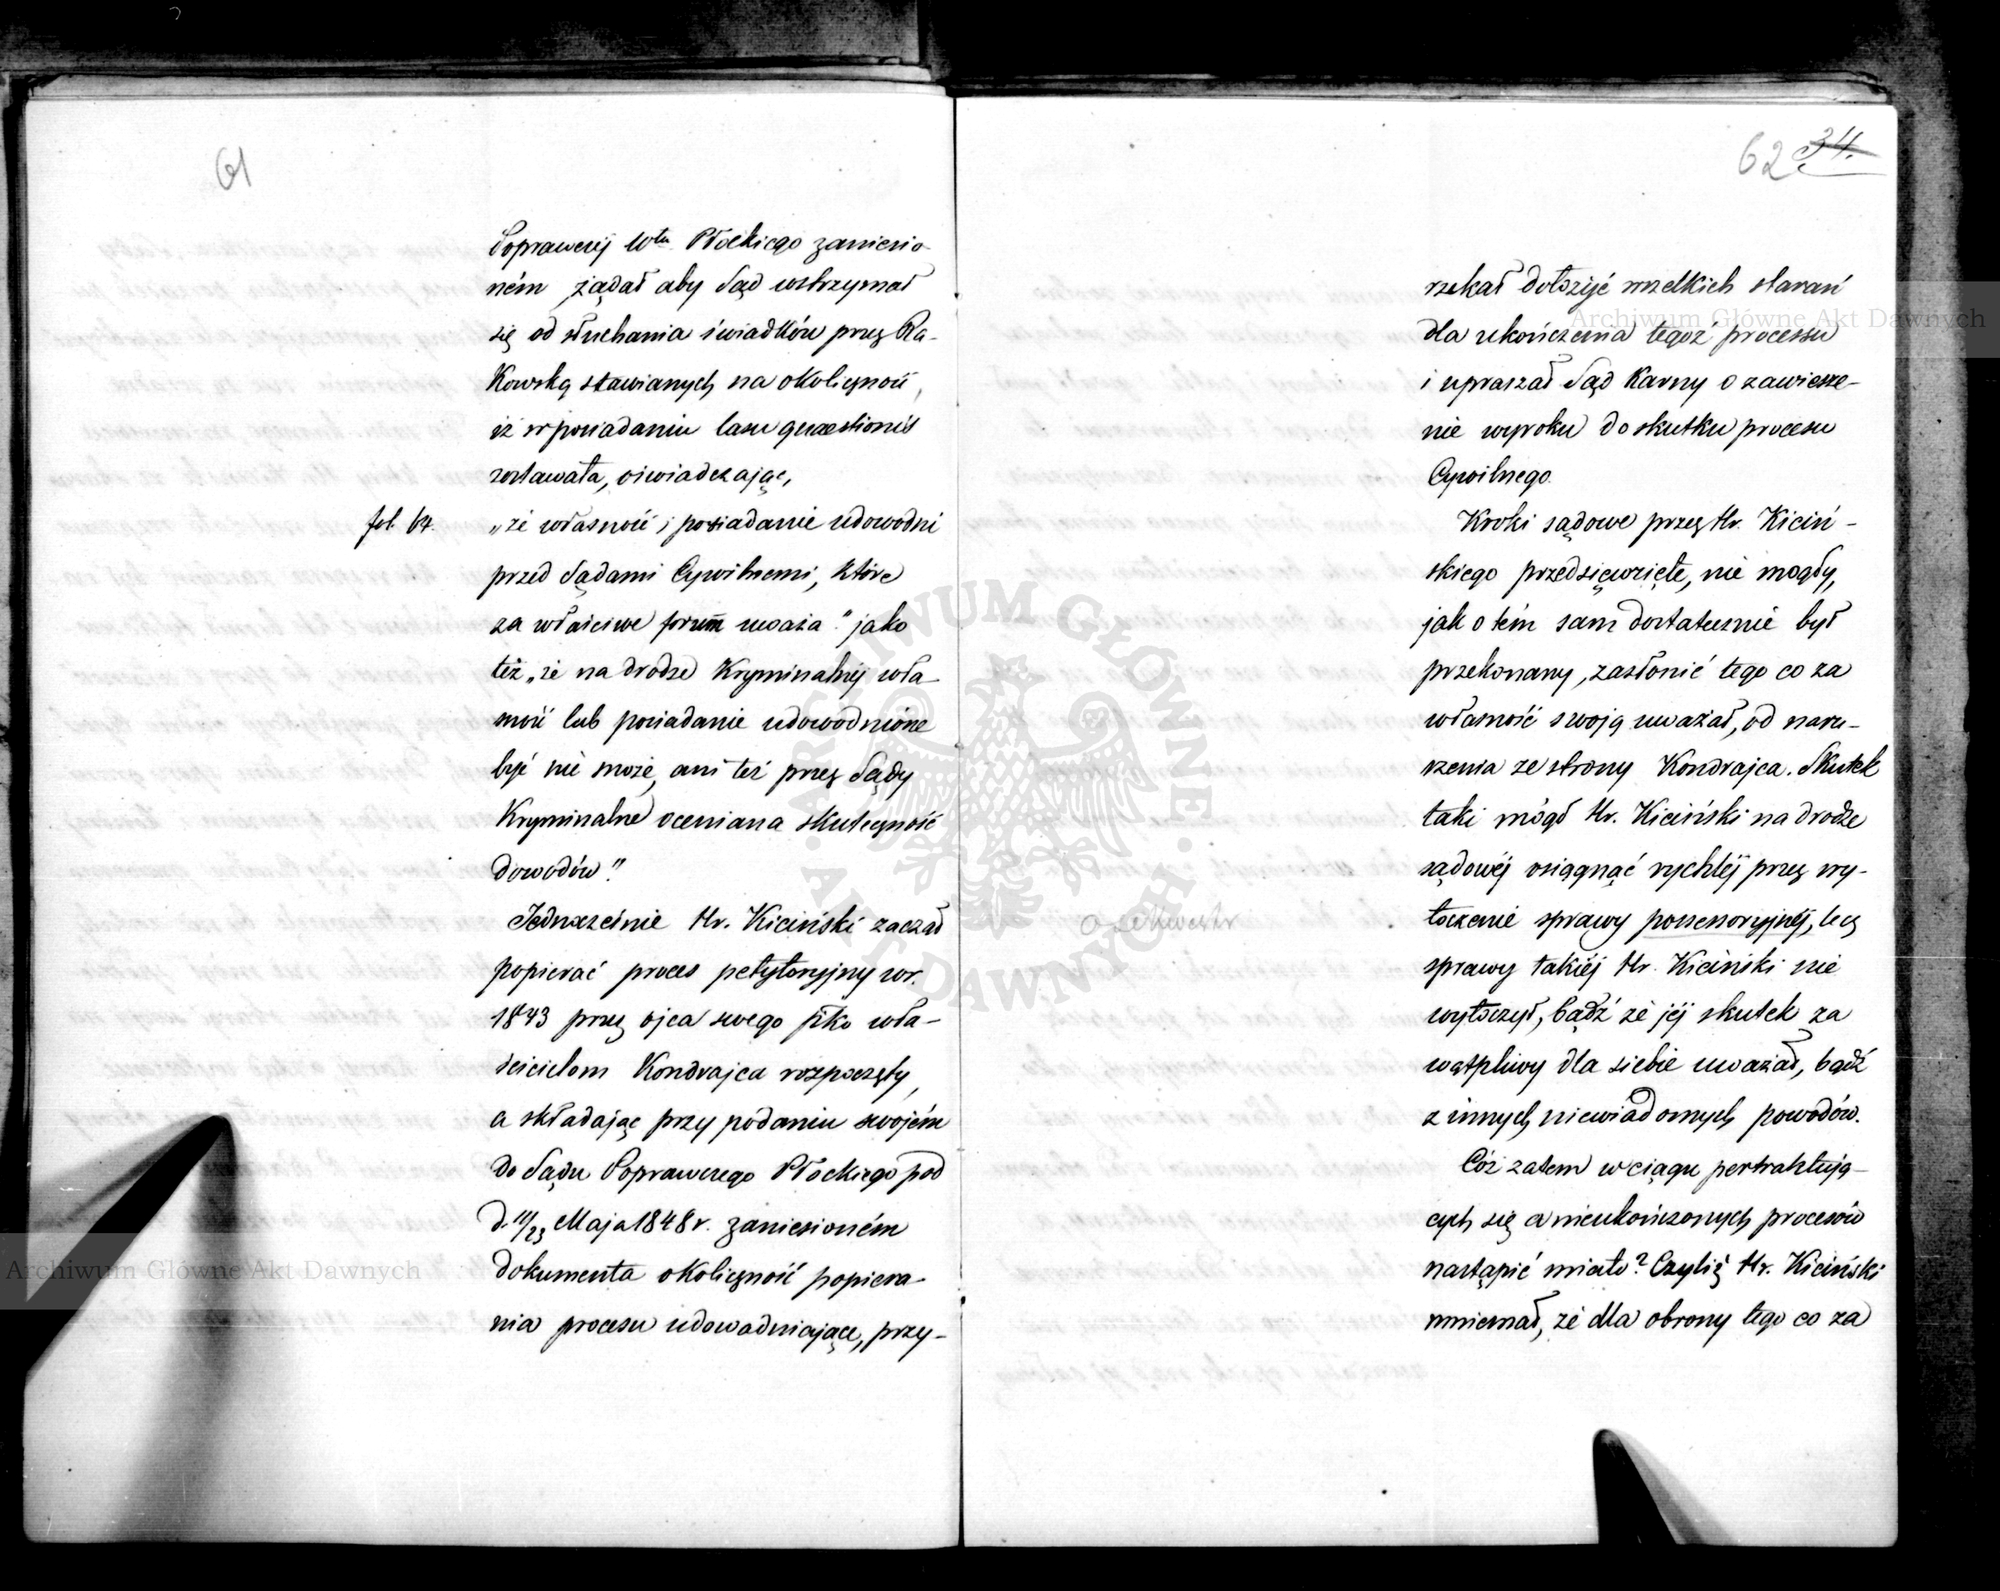 61
Poprawczej Wtu Płockiego zaniesio-
ném żądał aby Sąd wstrzymał
się od słuchania świadków przez Ra-
kowską stawianych na okoliczność,
iż w posiadaniu lasu quaestionis
zostawała, oświadczając,
fol. 64. „że własność i posiadanie udowodni
przed Sądami Cywilnemi, które
za właściwe forum uważa." jako
też „że na drodze Kryminalnéj wła-
sność lub posiadanie udowodnione
być nie może, ani też przez Sądy
Kryminalne oceniana skuteczność
dowodów."
Jednocześnie Hr. Kiciński zaczął
popierać proces petytoryjny w r.
1843 przez ojca swego jko wła-
ścicielom Kondrajca rozpoczęty,
a składając przy podaniu swojém
do Sądu Poprawczego Płockiego pod
d. 11/23 Maja 1848 r. zaniesioném
dokumenta okoliczność popiera-
nia procesu udowadniające, przy-
62 34.
rzekał dołożyć wszelkich starań
dla ukończenia tegoż processu
i upraszał Sąd Karny o zawiesze-
nie wyroku do skutku procesu
Cywilnego.
Kroki sądowe przez Hr. Kiciń-
skiego przedsięwzięte, nie mogły,
jak o tém sam dostatecznie był
przekonany, zasłonić tego co za
własność swoją uważał, od naru-
szenia ze strony Kondrajca. Skutek
taki mógł Hr. Kiciński na drodze
sądowéj osiągnąć rychléj przez wy-
o sekwestr
toczenie sprawy possessoryjnéj, lecz
sprawy takiéj Hr. Kiciński nie
wytoczył, bądź że jéj skutek za
wątpliwy dla siebie uważał, bądź
z innych niewiadomych powodów.
Cóż zatem w ciągu pertraktują-
cych się a nieukończonych procesów
nastąpić miało? Czyliż Hr. Kiciński
mniemał, że dla obrony tego co za
Archiwum Główne Akt Dawnych
Archiwum Główne Akt Dawnych
ARCHIWUM GŁÓWNE AKT DAWNYCH